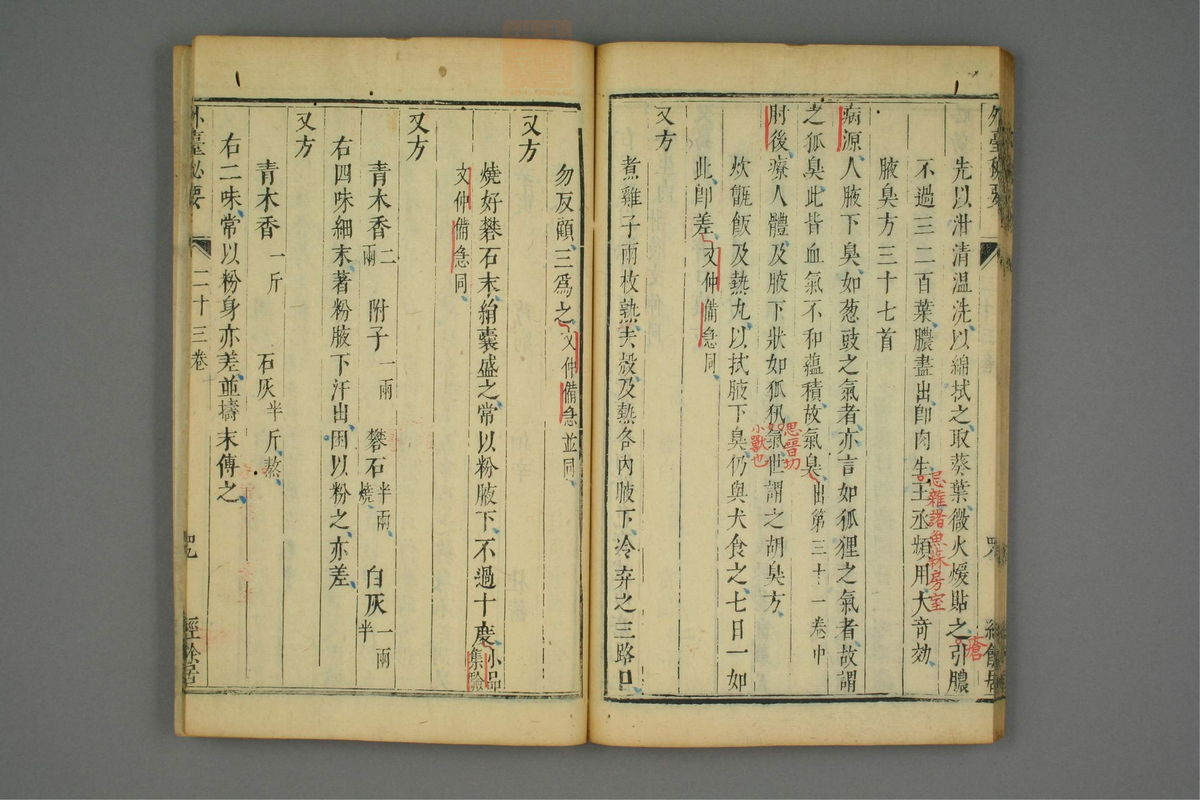 外臺秘要
先以泔清温洗以綿拭之取葵葉微火煖貼之引膿
瘡
不過三二百葉膿盡出即肉生王丞頻用大奇効
忌雜諸魚蒜房室
腋臭方三十七首
病源人腋下臭如葱豉之氣者亦言如狐狸之氣者故謂
之狐臭此皆血氣不和蘊積故氣臭出第三十一卷中
肘後療人體及腋下狀如狐㹤氣世謂之胡臭方
思晋切
小獸也
炊甑飯及熱丸以拭腋下臭仍與犬食之七日一如
此即差文仲備急同
又方
煮雞子兩枚熟去殼及熱各內腋下冷弃之三路口
勿反顧三為之文仲備急並同
又方
燒好礬石末絹囊盛之常以粉腋下不過十度小品集驗
文仲備急同
又方
青木香二兩 附子一兩 礬石半兩燒 白灰一兩半
右四味細末著粉腋下汗出因以粉之亦差
又方
青木香一斤 石灰半斤熬
右二味常以粉身亦差並擣末傅之
外臺秘要 二十三卷 經餘居